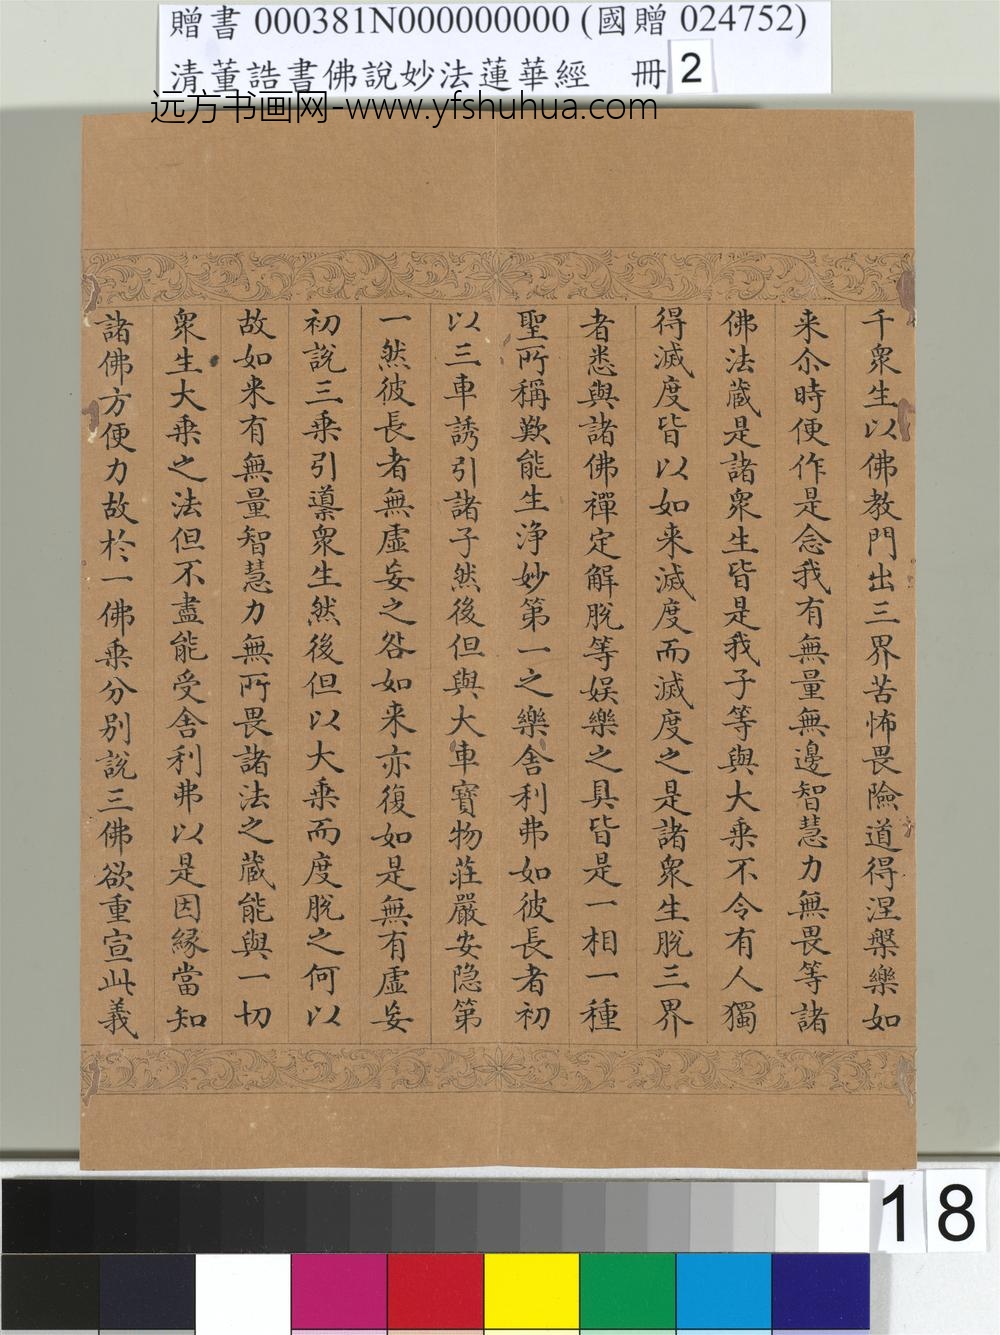 贈書 000381N000000000 (國贈 024752)
清董誥書佛說妙法蓮華經 冊 2
远方书画网-www.yfshuhua.com
千衆生以佛教門出三界苦怖畏險道得涅槃樂如
来尒時便作是念我有無量無邊智慧力無畏等諸
佛法蔵是諸衆生皆是我子等與大乗不令有人獨
得滅度皆以如来滅度而滅度之是諸衆生脫三界
者悉與諸佛禪定解脫等娱樂之具皆是一相一種
聖所稱歎能生淨妙第一之樂舎利弗如彼長者初
以三車誘引諸子然後但與大車寳物莊嚴安隐第
一然彼長者無虚妄之咎如来亦復如是無有虚妄
初說三乗引導衆生然後但以大乗而度脫之何以
故如来有無量智慧力無所畏諸法之蔵能與一切
衆生大乗之法但不盡能受舎利弗以是因緣當知
諸佛方便力故扵一佛乗分別說三佛欲重宣此義
18